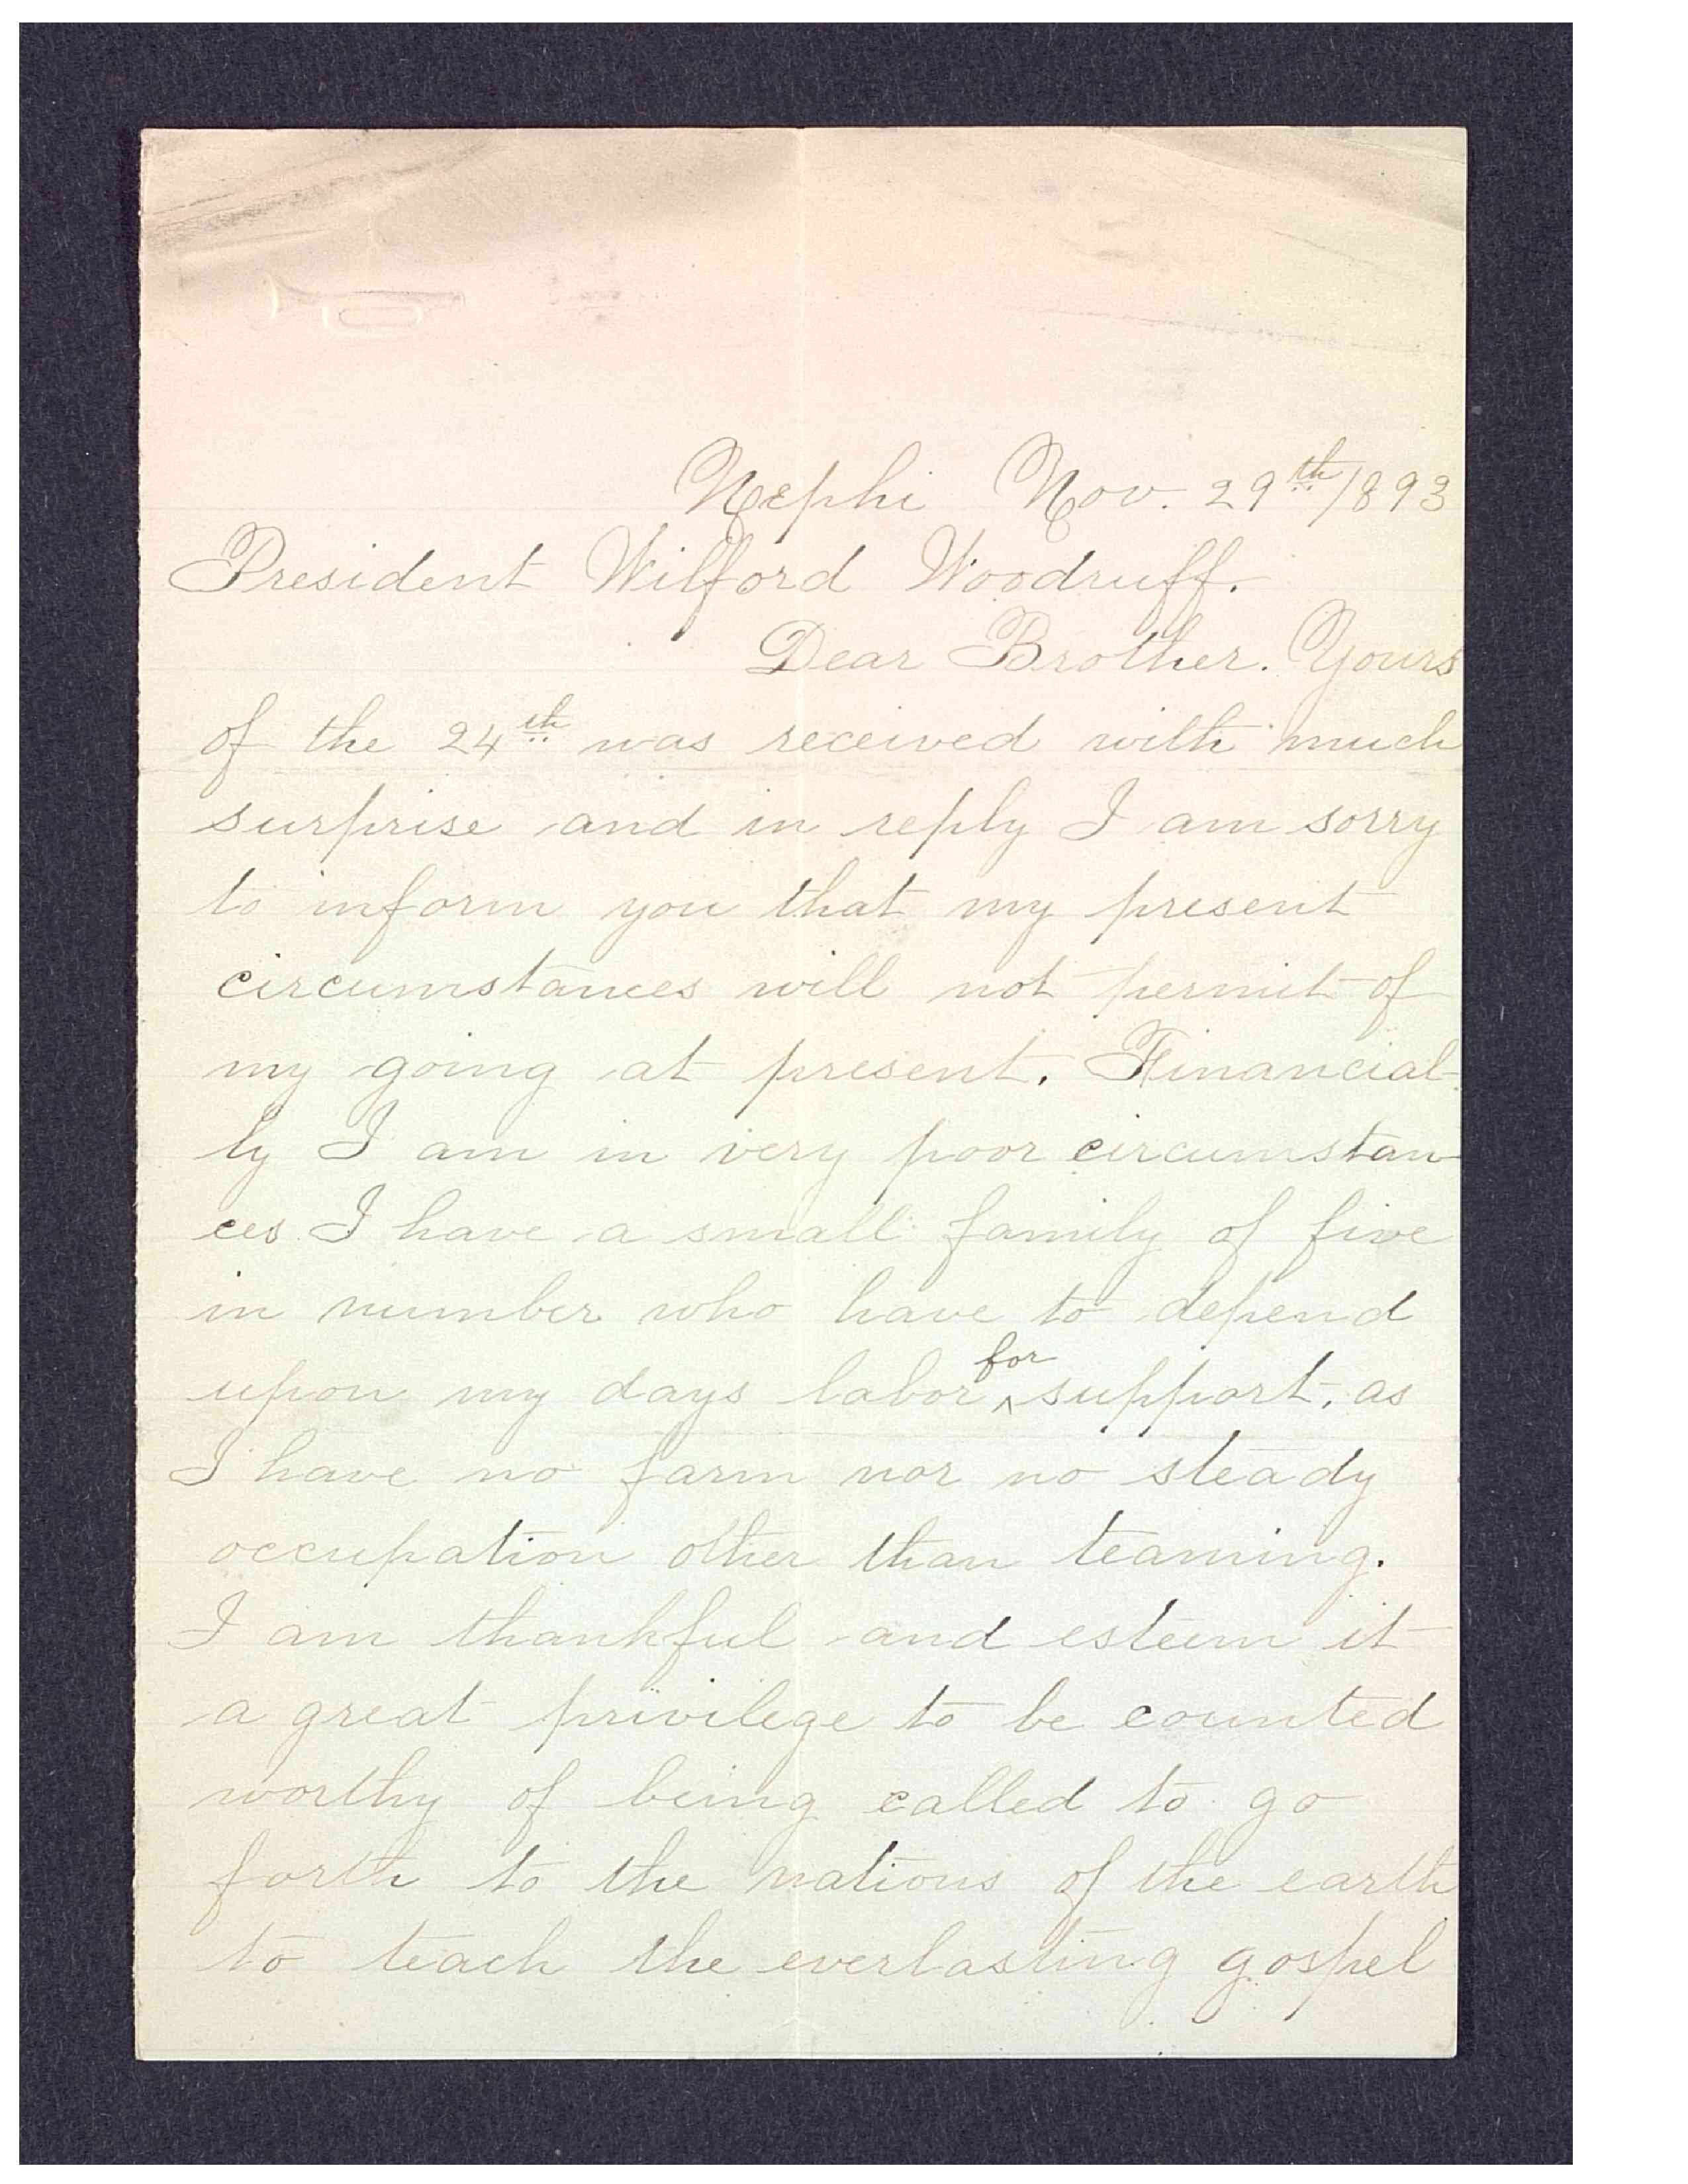 Nephi Nov. 29th/1893
President Wilford Woodruff.
Dear Brother. Yours
of the 24th was received with much
surprise and in reply I am sorry
to inform you that my present
circumstances will not permit of
my going at present. Financial-
ly I am in very poor circumstan-
ces I have a small family of five
in number who have to depend
upon my days labor ^for support, as
I have no farm nor no steady
occupation other than teaming.
I am thankful and esteem it
a great privilege to be counted
worthy of being called to go
forth to the nations of the earth
to teach the everlasting gospel